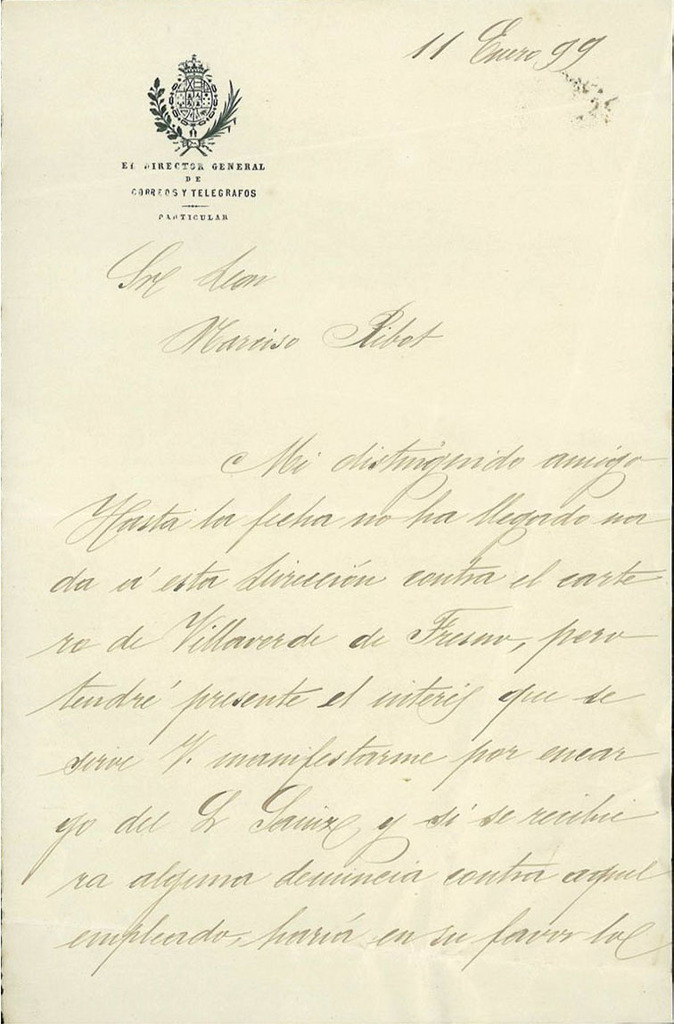 11 Enero 99
EL DIRECTOR GENERAL
DE
CORREOS Y TELEGRAFOS
PARTICULAR
Narciso Ribot
Mi distinguido amigo
Hasta la fecha no ha llegado na
da á esta Dirección contra el carte
ro de Villaverde de Fresno, pero
tendré presente el interés que se
sirve V. manifestarme por encar
go del Sr Sainz y si se recibie
ra alguna denuncia contra aquel
empleado, haría en su favor lo